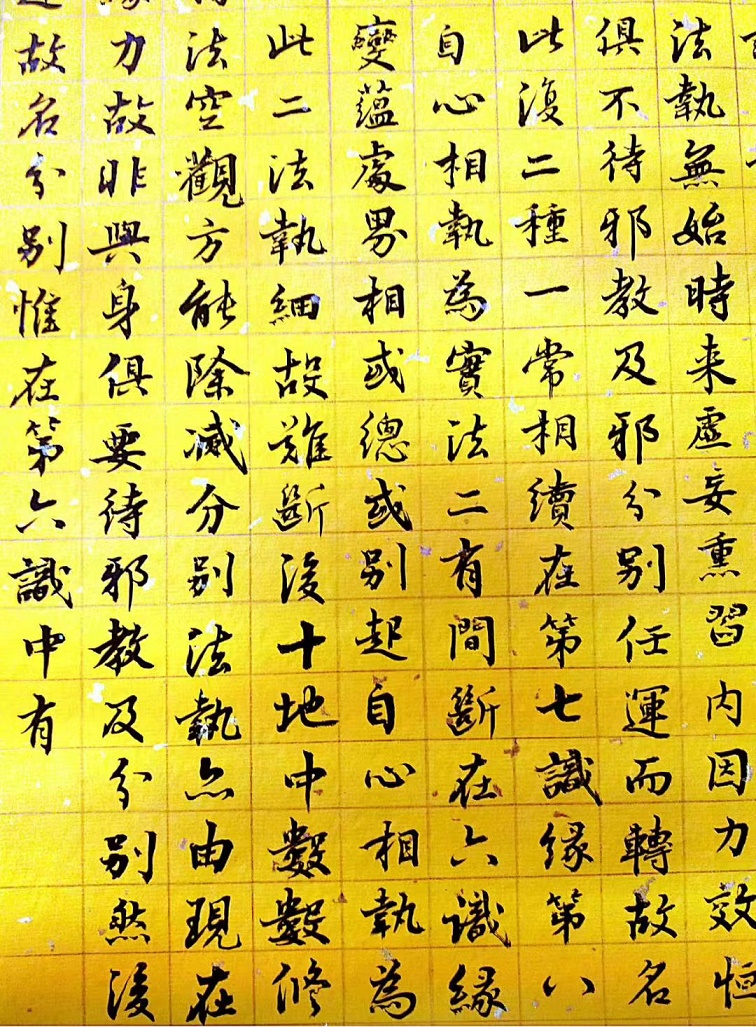 法執無始時来虛妄熏習内因力效恒
俱不待邪教及邪分别任運而轉故名
此復二種一常相續在第七識緣第八
自心相執為實法二有間斷在六識緣
變蘊處界相或總或别起自心相執為
此二法執細故難斷後十地中數數修
法空觀方能除滅分别法執亦由現在
力故非與身俱要待邪教及分别然後
故名分别惟在第六識中有